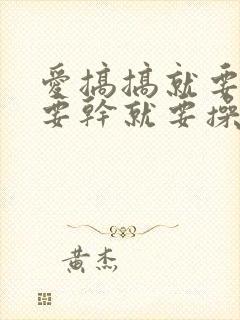 愛搞搞就要
要幹就要操
黃杰